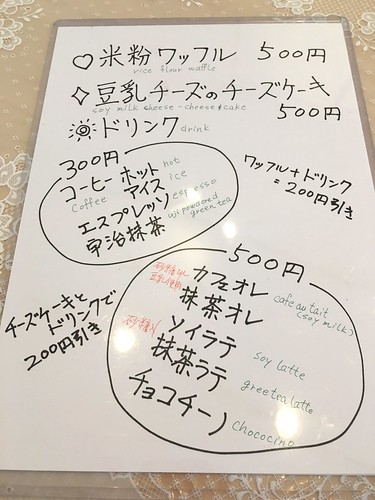 ♡米粉ワッフル 500円
rice flour waffle
✧豆乳チーズのチーズケーキ
soy milk cheese-cheese cake
500円
ドリンク drink
300円
コーヒー ホット hot
アイス ice
coffee
エスプレッソ espresso
宇治抹茶 uji powdered
green tea
ワッフル+ドリンク
=200円引き
500円
砂糖なし
豆乳使用
カフェオレ
cafe au tait
抹茶オレ
(soy milk)
砂糖入り
ソイラテ
soy latte
抹茶ラテ
greetea latte
チョコチーノ
chococino
チーズケーキと
ドリンクで
200円引き